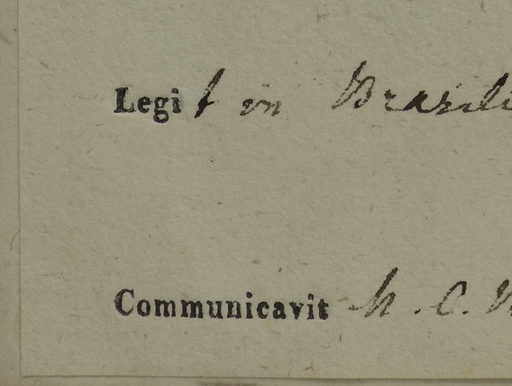 Legit in Brasili
Communicavit h. C.